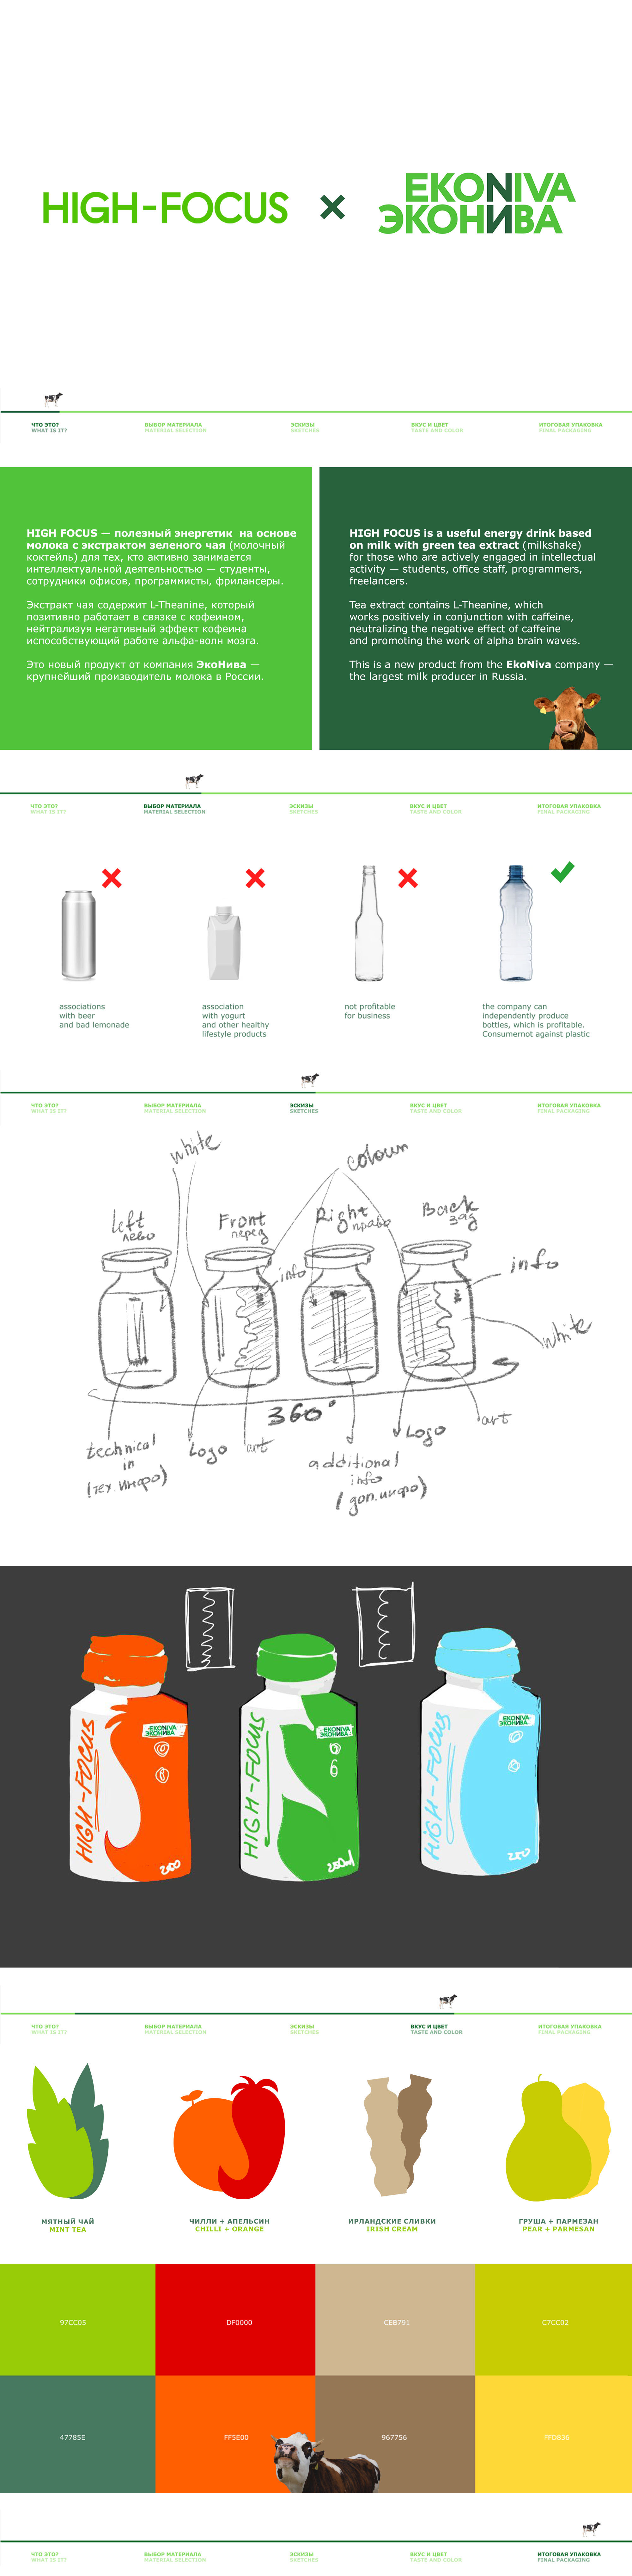 HIGH-FOCUS × EKONIVA
ЭКОНИВА
ЧТО ЭТО?
WHAT IS IT?
ВЫБОР МАТЕРИАЛА
MATERIAL SELECTION
ЭСКИЗЫ
SKETCHES
ВКУС И ЦВЕТ
TASTE AND COLOR
ИТОГОВАЯ УПАКОВКА
FINAL PACKAGING
HIGH FOCUS — полезный энергетик на основе
молока с экстрактом зеленого чая (молочный
коктейль) для тех, кто активно занимается
интеллектуальной деятельностью — студенты,
сотрудники офисов, программисты, фрилансеры.
Экстракт чая содержит L-Theanine, который
позитивно работает в связке с кофеином,
нейтрализуя негативный эффект кофеина
испособствующий работе альфа-волн мозга.
Это новый продукт от компания ЭкоНива —
крупнейший производитель молока в России.
HIGH FOCUS is a useful energy drink based
on milk with green tea extract (milkshake)
for those who are actively engaged in intellectual
activity — students, office staff, programmers,
freelancers.
Tea extract contains L-Theanine, which
works positively in conjunction with caffeine,
neutralizing the negative effect of caffeine
and promoting the work of alpha brain waves.
This is a new product from the EkoNiva company —
the largest milk producer in Russia.
ЧТО ЭТО?
WHAT IS IT?
ВЫБОР МАТЕРИАЛА
MATERIAL SELECTION
ЭСКИЗЫ
SKETCHES
ВКУС И ЦВЕТ
TASTE AND COLOR
ИТОГОВАЯ УПАКОВКА
FINAL PACKAGING
associations
with beer
and bad lemonade
association
with yogurt
and other healthy
lifestyle products
not profitable
for business
the company can
independently produce
bottles, which is profitable.
Consumernot against plastic
ЧТО ЭТО?
WHAT IS IT?
ВЫБОР МАТЕРИАЛА
MATERIAL SELECTION
ЭСКИЗЫ
SKETCHES
ВКУС И ЦВЕТ
TASTE AND COLOR
ИТОГОВАЯ УПАКОВКА
FINAL PACKAGING
white
colour
left
лево
Front
перед
Right
право
Back
зад
info
info
white
360°
technical
in
(тех. инфо)
Logo
art
additional
info
(доп. инфо)
Logo
art
HIGH-FOCUS
EKONIVA
ЭКОНИВА
200
HIGH-FOCUS
EKONIVA
ЭКОНИВА
250ml
HIGH-FOCUS
EKONIVA
ЭКОНИВА
250
ЧТО ЭТО?
WHAT IS IT?
ВЫБОР МАТЕРИАЛА
MATERIAL SELECTION
ЭСКИЗЫ
SKETCHES
ВКУС И ЦВЕТ
TASTE AND COLOR
ИТОГОВАЯ УПАКОВКА
FINAL PACKAGING
МЯТНЫЙ ЧАЙ
MINT TEA
ЧИЛЛИ + АПЕЛЬСИН
CHILLI + ORANGE
ИРЛАНДСКИЕ СЛИВКИ
IRISH CREAM
ГРУША + ПАРМЕЗАН
PEAR + PARMESAN
97CC05
DF0000
CEB791
C7CC02
47785E
FF5E00
967756
FFD836
ЧТО ЭТО?
WHAT IS IT?
ВЫБОР МАТЕРИАЛА
MATERIAL SELECTION
ЭСКИЗЫ
SKETCHES
ВКУС И ЦВЕТ
TASTE AND COLOR
ИТОГОВАЯ УПАКОВКА
FINAL PACKAGING